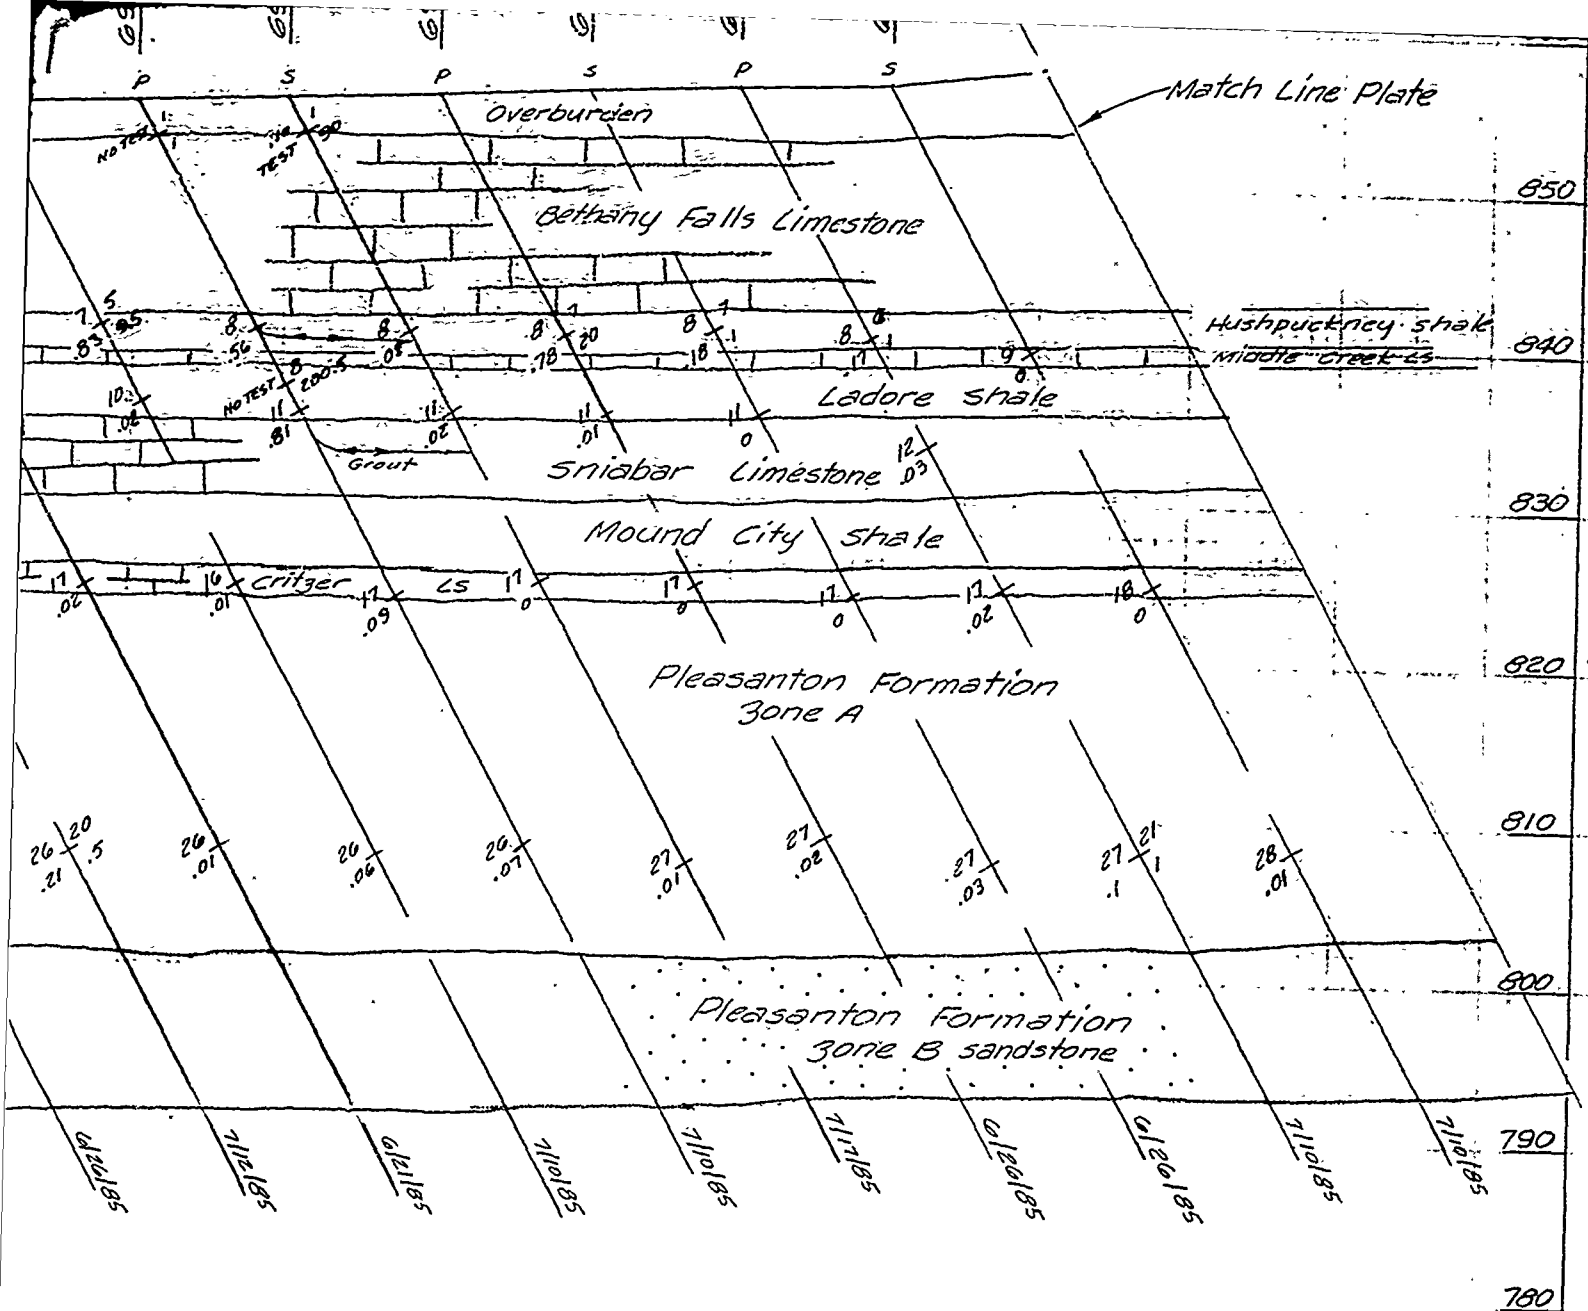 P S P S P S
Match Line Plate
Overburden
1
NO TEST
1
1
90
TEST
850
Bethany Falls Limestone
7 5
.83 95
8
.56
8
.08
8 7
.78 20
8 7
.18 1
8 6
.17 1
9
0
Hushpuckney shale
Middle Creek LS
840
10
.02
8
NO TEST 200.5
11
.81
11
.02
11
.01
11
0
Ladore Shale
Grout
Sniabar Limestone
12
.03
830
Mound City Shale
17
.02
16
.01
Critzer LS
17
.09
17
0
17
0
17
0
17
.02
18
0
820
Pleasanton Formation
Zone A
810
26 20
.21 .5
26
.01
26
.06
26
.07
27
.01
27
.02
27
.03
27 21
.1 1
28
.01
800
Pleasanton Formation
Zone B sandstone
790
6/26/85
7/12/85
6/21/85
7/10/85
7/10/85
7/17/85
6/26/85
6/26/85
7/10/85
7/10/85
780